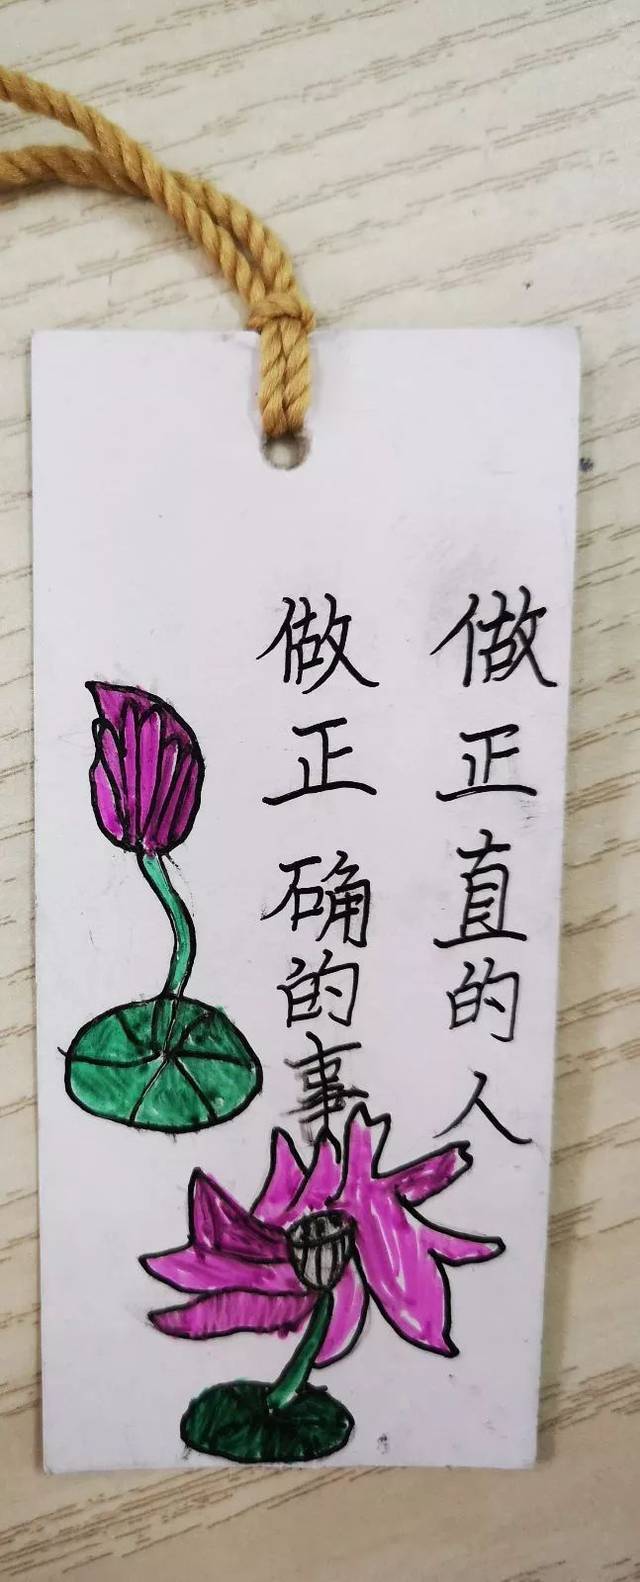 做正直的人
做正确的事